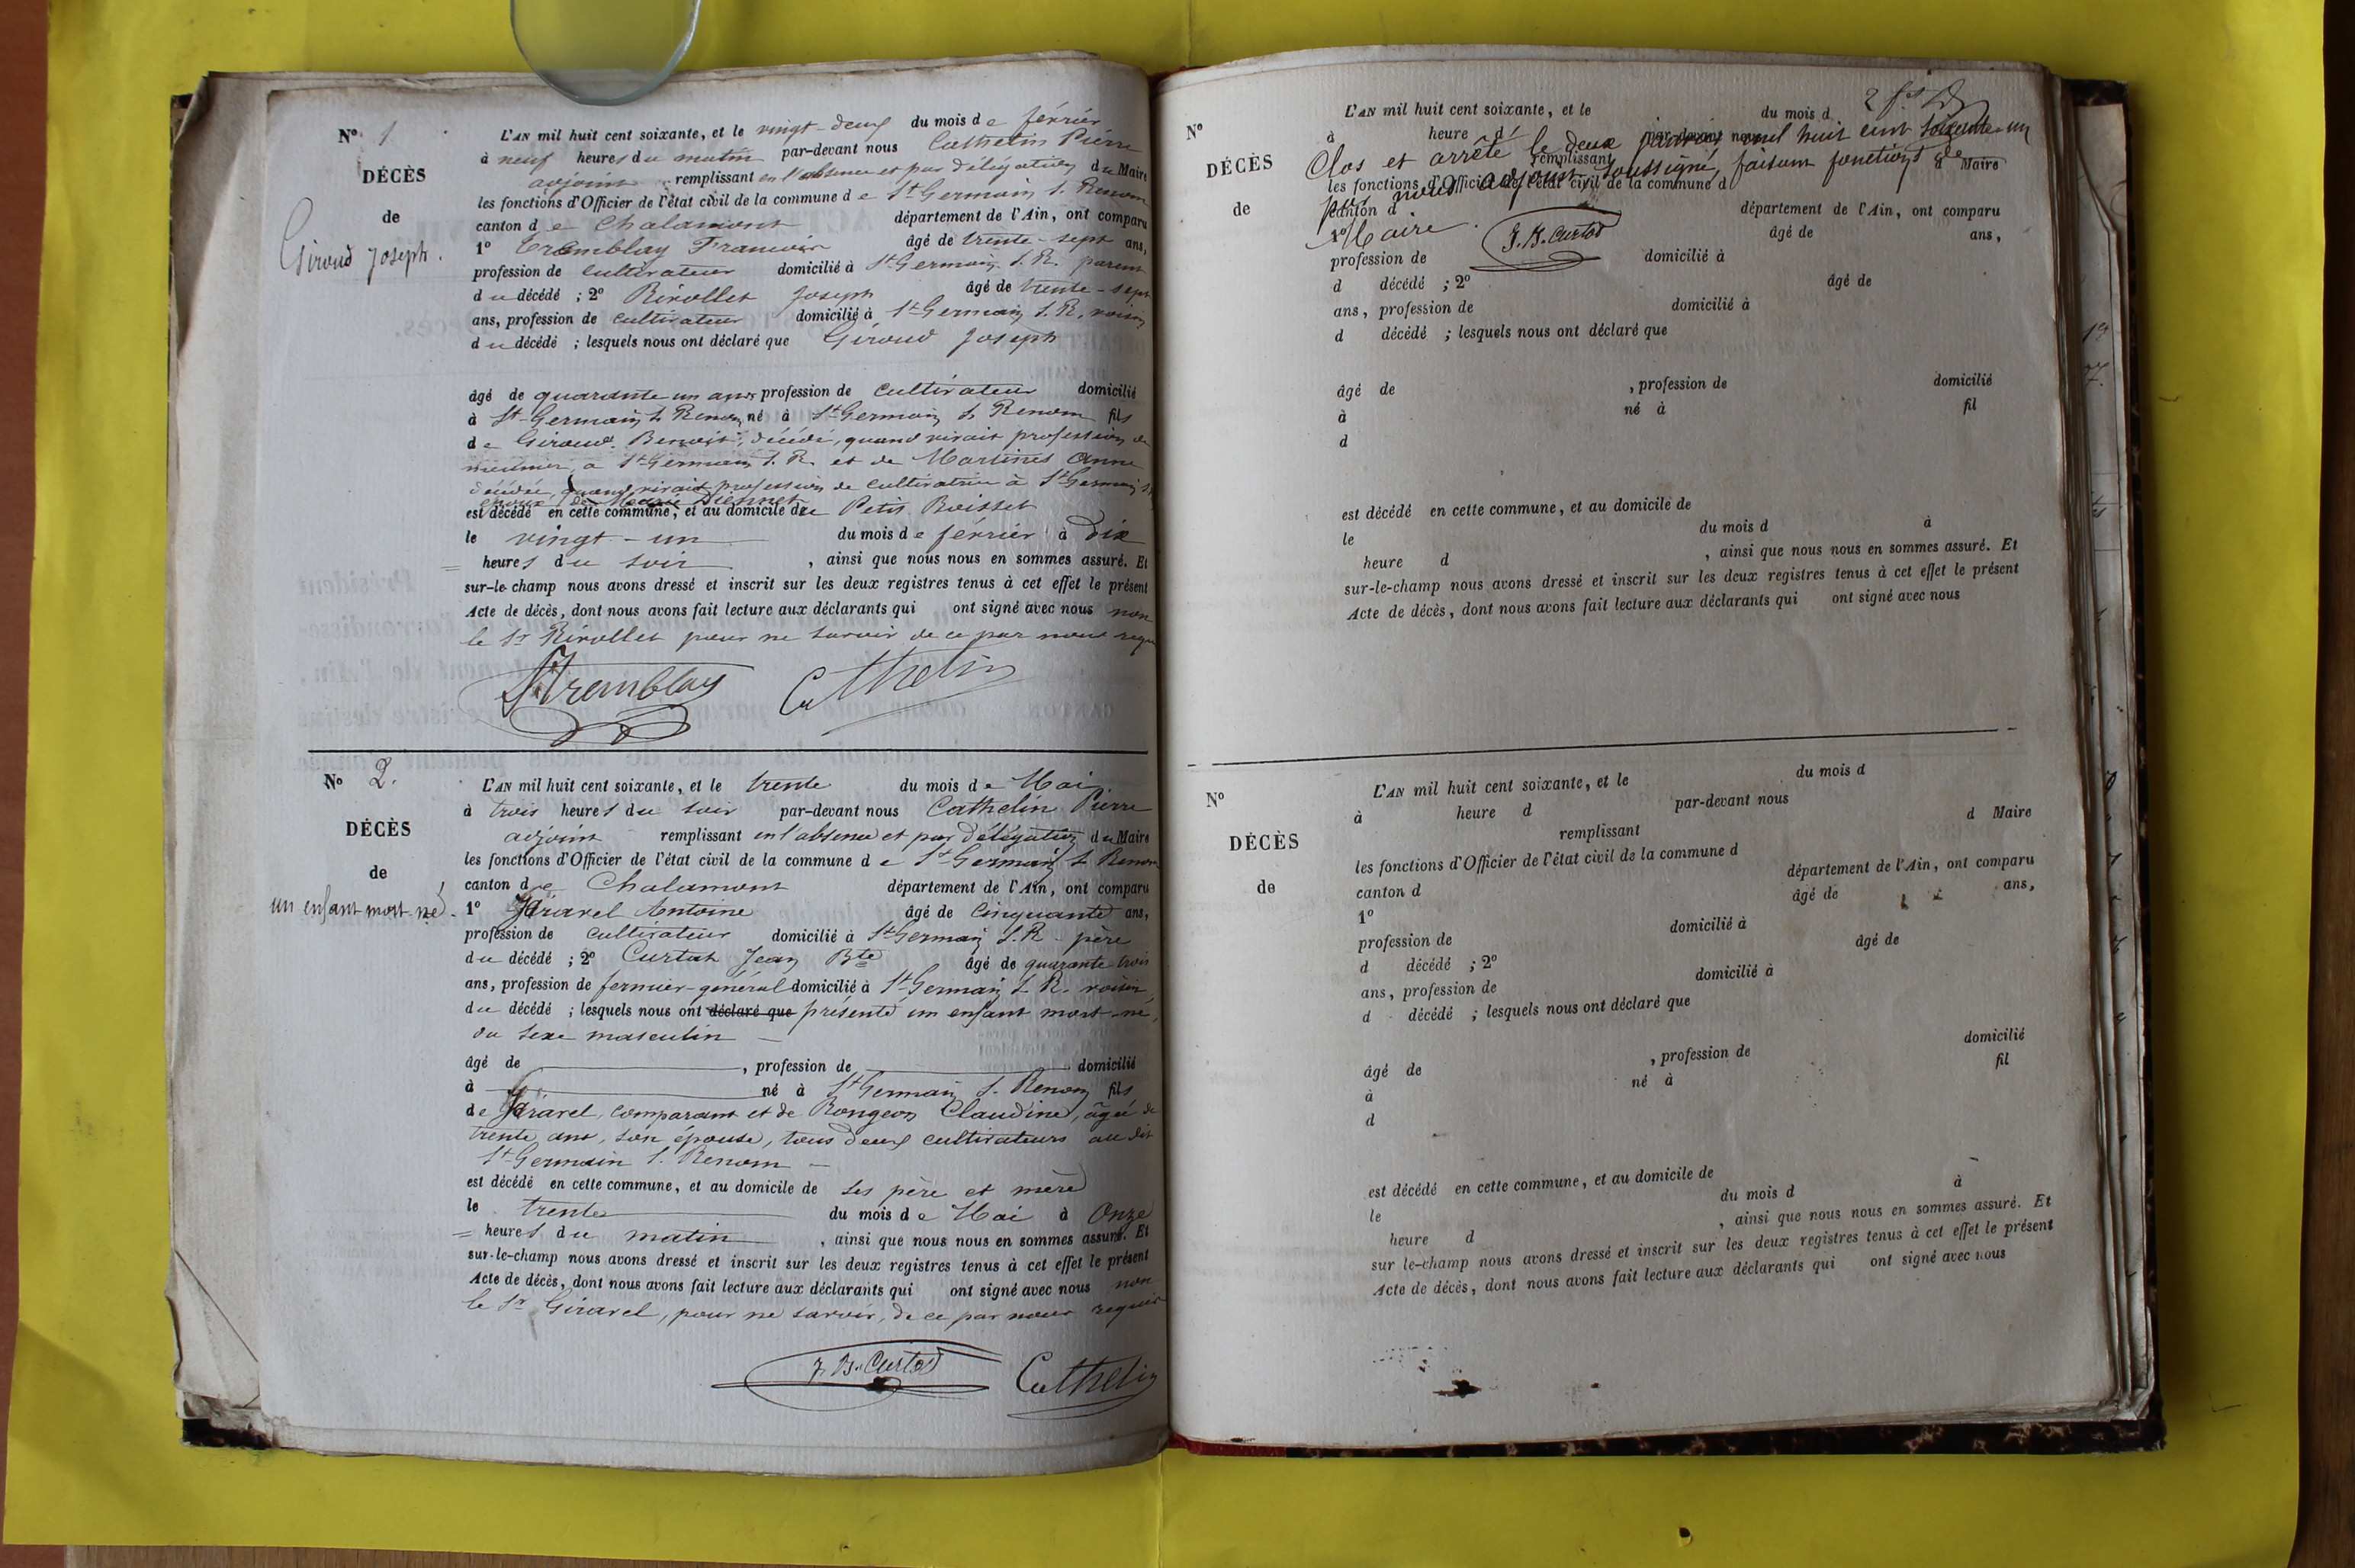 N° 1
DÉCÈS
de
Giroud Joseph.
L'AN mil huit cent soixante, et le vingt-deux du mois de février
à neuf heures du matin par-devant nous Cathelin Pierre
adjoint remplissant en l'absence et par délégation du Maire
les fonctions d'Officier de l'état civil de la commune de St Germain s. Renom
canton de Chalamont département de l'Ain, ont comparu
1° Tremblay François âgé de trente-sept ans,
profession de cultivateur domicilié à St Germain s. R. parent
du décédé ; 2° Rivollet Joseph âgé de trente-sept
ans, profession de cultivateur domicilié à St Germain s. R. voisin
du décédé ; lesquels nous ont déclaré que Giroud Joseph
âgé de quarante un ans profession de cultivateur domicilié
à St-Germain s. Renom né à St Germain s. Renom fils
de Giroud Benoit, décédé, quand vivait profession de
meunier à St Germain s. R. et de Martinet Anne
décédée, quand vivait profession de cultivatrice à St Germain s.
époux de Marie
est décédé en cette commune, et au domicile de Petit Boisset
le vingt-un du mois de février à dix
heures du soir , ainsi que nous nous en sommes assuré. Et
sur-le-champ nous avons dressé et inscrit sur les deux registres tenus à cet effet le présent
Acte de décès, dont nous avons fait lecture aux déclarants qui ont signé avec nous non
le Sr Rivollet pour ne savoir de ce par nous requis
Tremblay Cathelin
N° 2.
DÉCÈS
de
un enfant mort-né.
L'AN mil huit cent soixante, et le trente du mois de Mai
à trois heures du soir par-devant nous Cathelin Pierre
adjoint remplissant en l'absence et par délégation du Maire
les fonctions d'Officier de l'état civil de la commune de St Germain s. Renom
canton de Chalamont département de l'Ain, ont comparu
1° Giravel Antoine âgé de cinquante ans,
profession de cultivateur domicilié à St Germain s. R. père
du décédé ; 2° Curtat Jean Bte âgé de quarante trois
ans, profession de fermier-général domicilié à St Germain s. R. voisin,
du décédé ; lesquels nous ont déclaré que présenté un enfant mort-né,
du sexe masculin
âgé de , profession de domicilié
à né à St Germain s. Renom fils
de Giravel, comparant et de Rongeon Claudine, âgée de
trente ans, son épouse, tous deux cultivateurs au dit
St Germain s. Renom
est décédé en cette commune, et au domicile de ses père et mère
le trente du mois de Mai à Onze
heures du matin , ainsi que nous nous en sommes assuré. Et
sur-le-champ nous avons dressé et inscrit sur les deux registres tenus à cet effet le présent
Acte de décès, dont nous avons fait lecture aux déclarants qui ont signé avec nous non
le Sr Giravel, pour ne savoir, de ce par nous requis
J. B. Curtat Cathelin
N°
DÉCÈS
de
L'AN mil huit cent soixante, et le du mois d
à heure d par-devant nous
Clos et arrêté le deux janvier mil huit cent soixante-un
remplissant d Maire
par nous adjoint, soussigné, faisant fonctions de
les fonctions d'Officier de l'état civil de la commune d
canton d département de l'Ain, ont comparu
Maire. J. B. Curtat
1° âgé de ans,
profession de domicilié à
d décédé ; 2° âgé de
ans, profession de domicilié à
d décédé ; lesquels nous ont déclaré que
âgé de , profession de domicilié
à né à fil
d
est décédé en cette commune, et au domicile de
le du mois d à
heure d , ainsi que nous nous en sommes assuré. Et
sur-le-champ nous avons dressé et inscrit sur les deux registres tenus à cet effet le présent
Acte de décès, dont nous avons fait lecture aux déclarants qui ont signé avec nous
N°
DÉCÈS
de
L'AN mil huit cent soixante, et le du mois d
à heure d par-devant nous
remplissant d Maire
les fonctions d'Officier de l'état civil de la commune d
canton d département de l'Ain, ont comparu
1° âgé de ans,
profession de domicilié à
d décédé ; 2° âgé de
ans, profession de domicilié à
d décédé ; lesquels nous ont déclaré que
âgé de , profession de domicilié
à né à fil
d
est décédé en cette commune, et au domicile de
le du mois d à
heure d , ainsi que nous nous en sommes assuré. Et
sur le-champ nous avons dressé et inscrit sur les deux registres tenus à cet effet le présent
Acte de décès, dont nous avons fait lecture aux déclarants qui ont signé avec nous